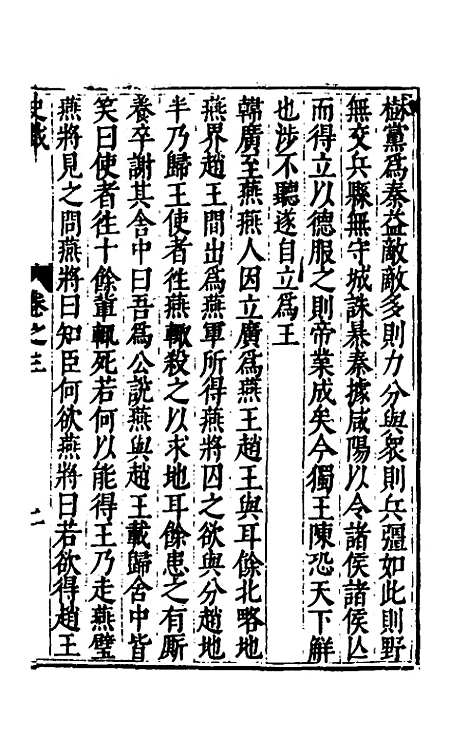 樹黨爲秦益敵敵多則力分與衆則兵彊如此則野
無交兵縣無守城誅暴秦據咸陽以令諸侯諸侯亾
而得立以德服之則帝業成矣今獨王陳恐天下解
也涉不聽遂自立爲王
韓廣至燕燕人因立廣爲燕王趙王與耳餘北略地
燕界趙王間出爲燕軍所得燕將囚之欲與分趙地
半乃歸王使者徃燕輙殺之以求地耳餘患之有厮
養卒謝其舍中曰吾爲公說燕與趙王載歸舍中皆
笑曰使者徃十餘軰輙死若何以能得王乃走燕壁
燕將見之問燕將曰知臣何欲燕將曰若欲得趙王
卷之三